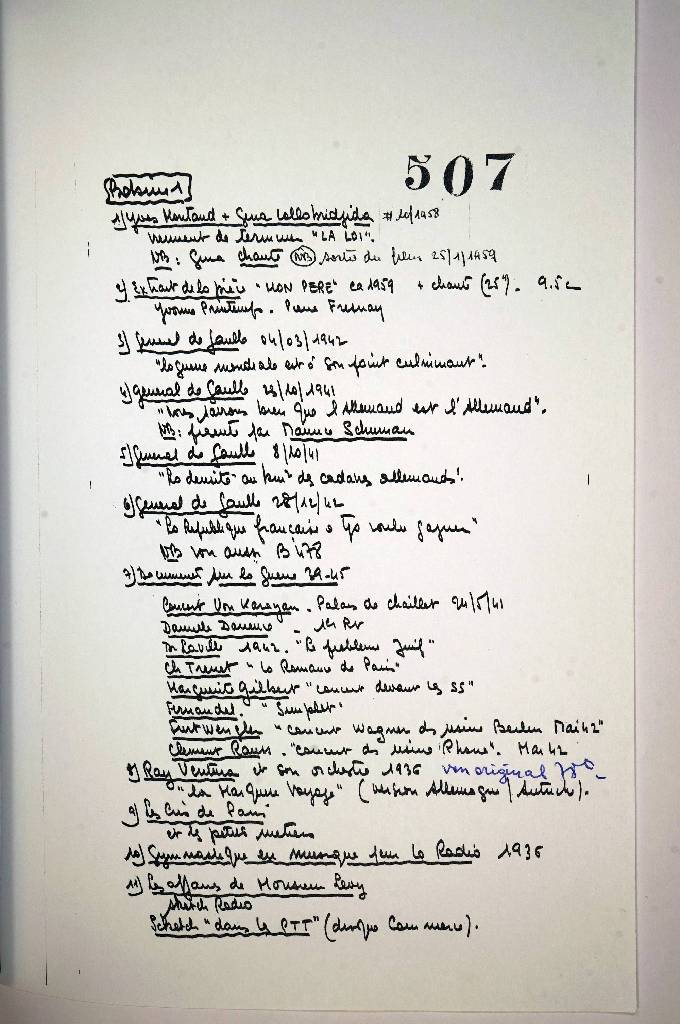 507
Bobine 1
1) Yves Montand + Gina Lollobridgida # 10/1958
viennent de terminer "LA LOI".
NB: Gina chante (NB) sortie du film 25/1/1959
2) Extrait de la pièce "MON PERE" ca 1959 + chant (25"). 9.5c
Yvonne Printemps. Pierre Fresnay
3) General de Gaulle 04/03/1942
"la guerre mondiale est à son point culminant".
4) General de Gaulle 23/10/1941
"nous savons bien que l'Allemand est l'Allemand".
NB: présenté par Maurice Schuman
5) General de Gaulle 8/10/41
"La densité au km² des cadavres allemands".
6) General de Gaulle 28/12/42
"La République française a tjs voulu gagner"
NB voir aussi B 478
7) Document sur la Guerre 39-45
Concert Von Karajan. Palais de chaillot 24/5/41
Danielle Darrieux - 1er RV
1942. "Le problème Juif"
Ch Trenet "la Romance de Paris"
Marguerite Gilbert "concert devant les SS"
Fernandel. "Simplet"
Furtwengler "concert Wagner ds usine Berlin Mai 42"
Clement "concert ds usine Rhone". Mai 42
8) Ray Ventura et son orchestre 1936 voir original
"la Marquise Voyage" (version Allemagne/Autriche).
9) Les Cris de Paris
et les petits metiers
10) Gymnastique en musique pour la Radio 1936
11) Les affaires de Monsieur Levy
sketch Radio
Scketch "dans les PTT" (disque Commerce).